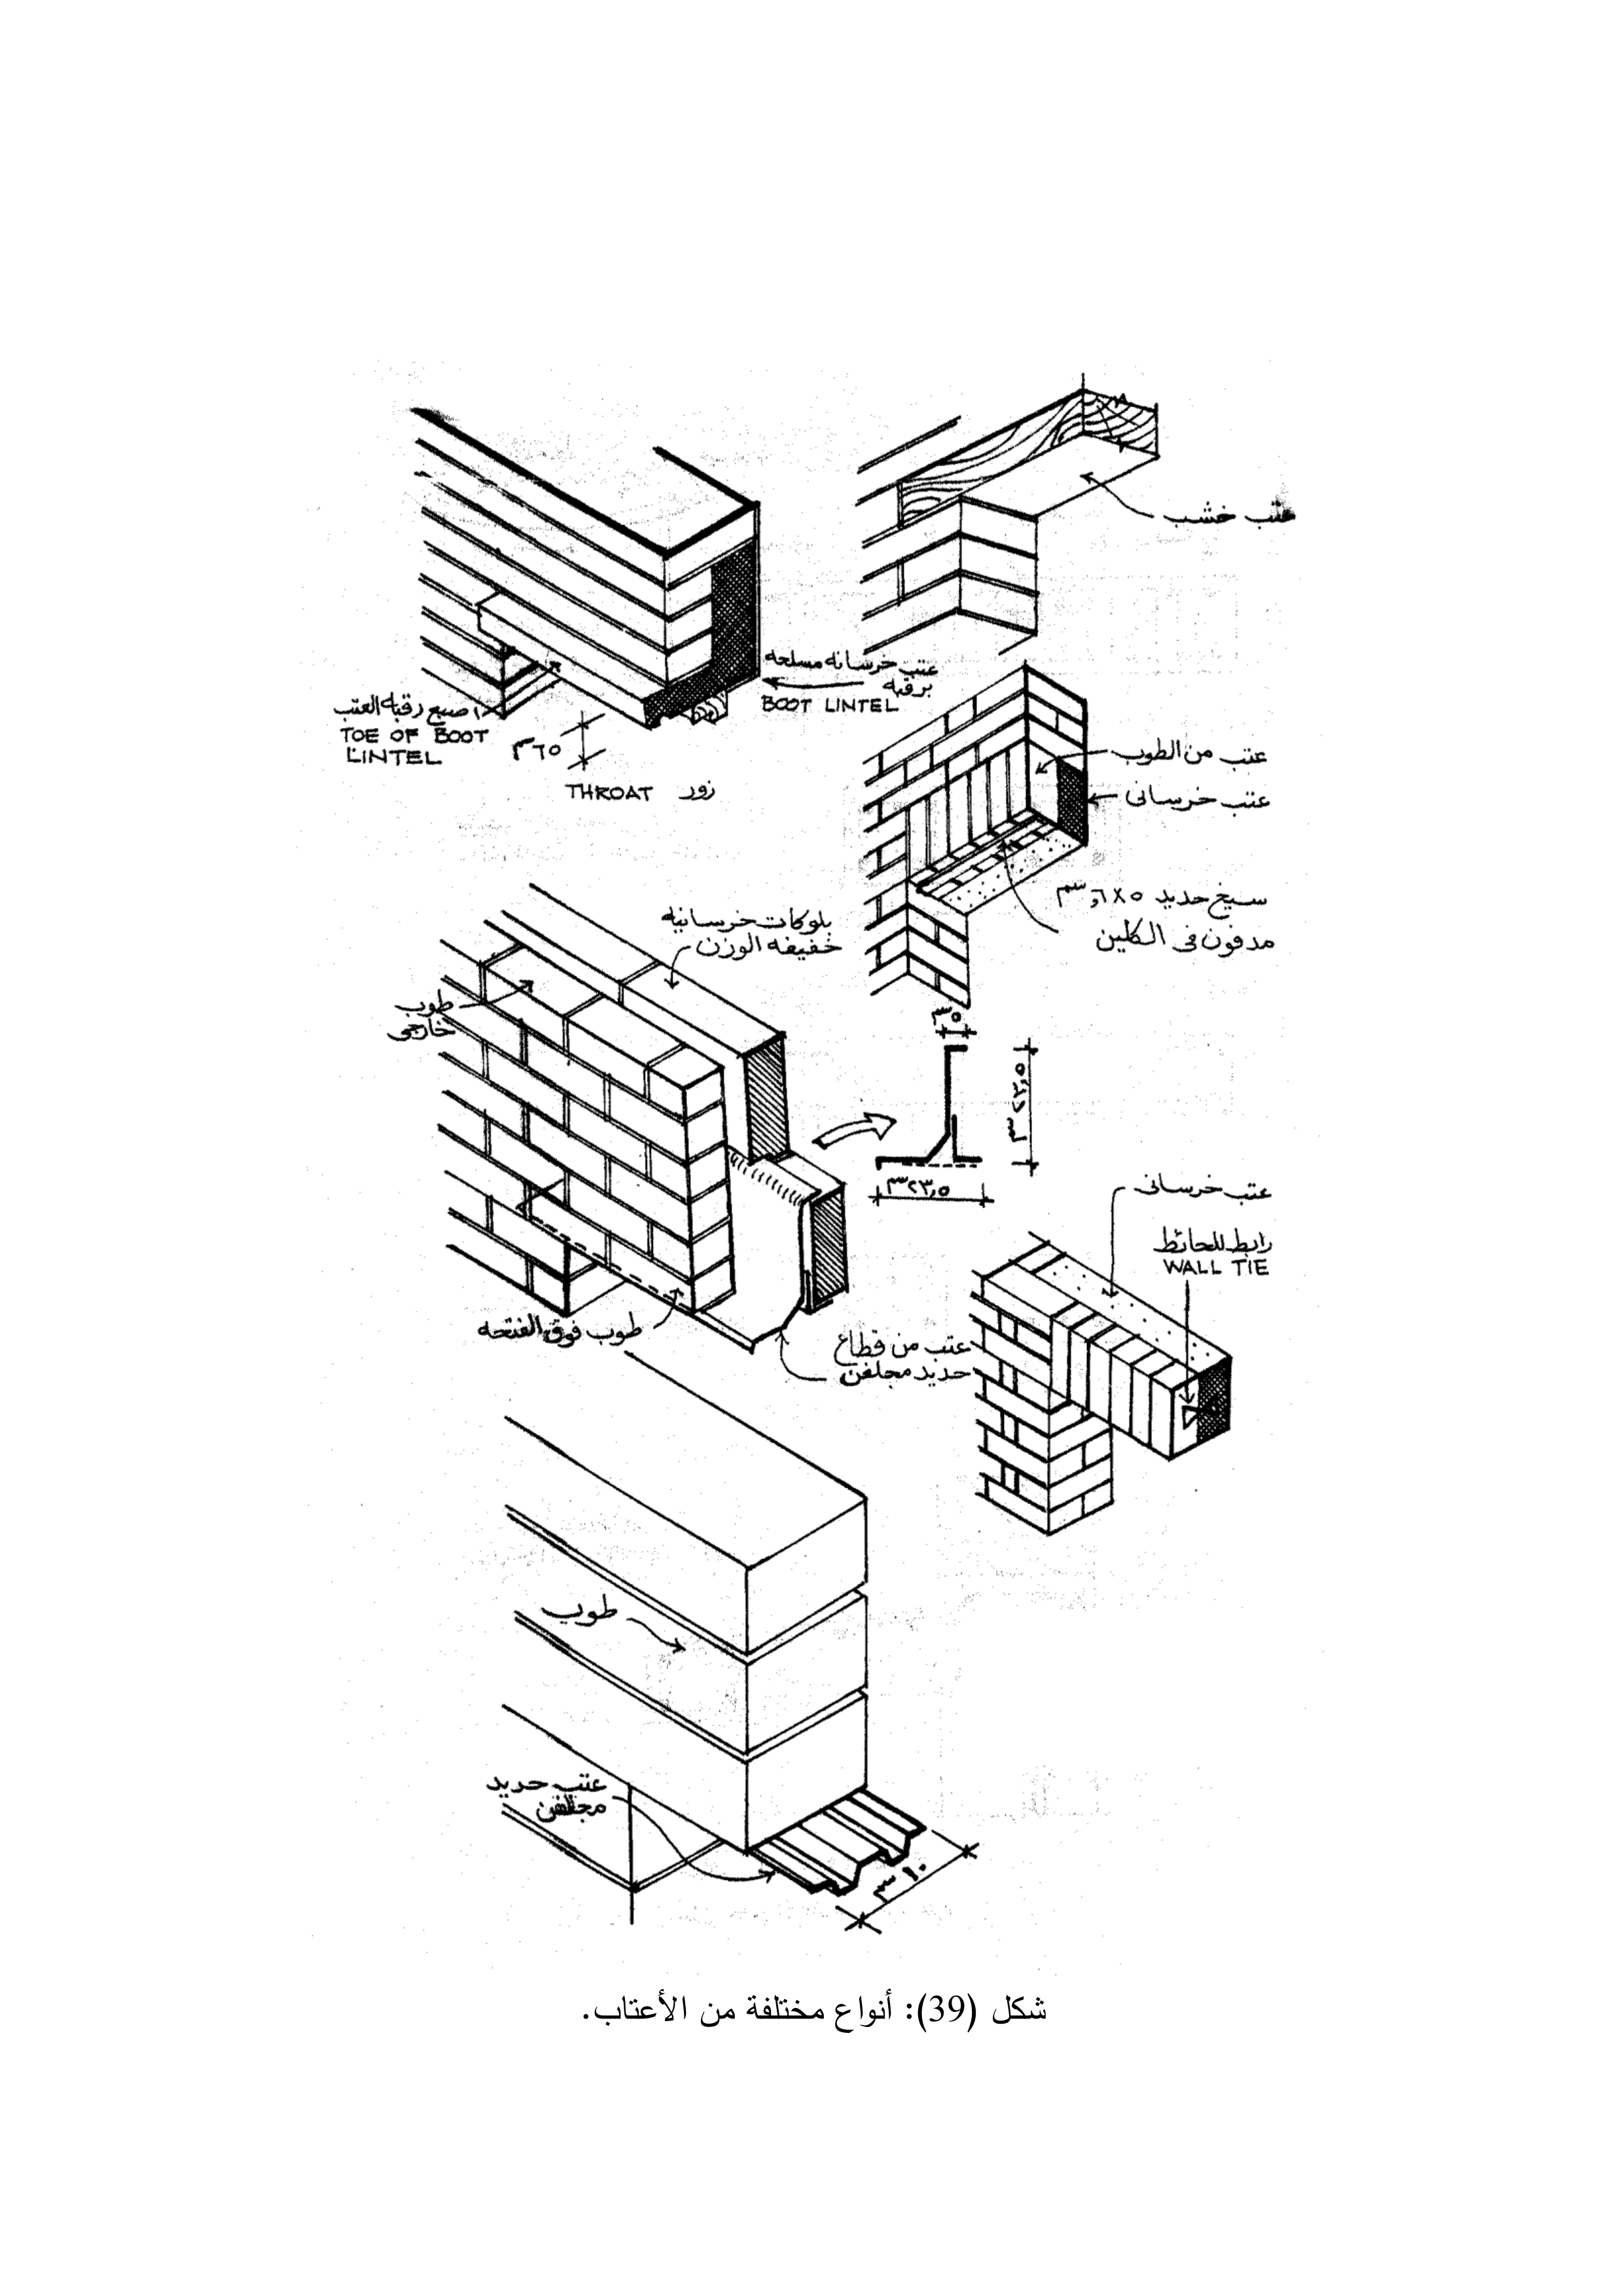 عتب خشب
عتب خرسانه مسلحه
برقبه
BOOT LINTEL
اصبع رقبة العتب
TOE OF BOOT
LINTEL
THROAT زور
عتب من الطوب
عتب خرسانى
سيخ حديد
مدفون فى الكلين
بلوكات خرسانيه
خفيفه الوزن
طوب
خارجى
٢٣٫٥سم
طوب فوق الفتحه
عتب من قطاع
حديد مجلفن
عتب خرسانى
رابط للحائط
WALL TIE
طوب
عتب حديد
مجلفن
١٠ سم
شكل (39): أنواع مختلفة من الأعتاب.